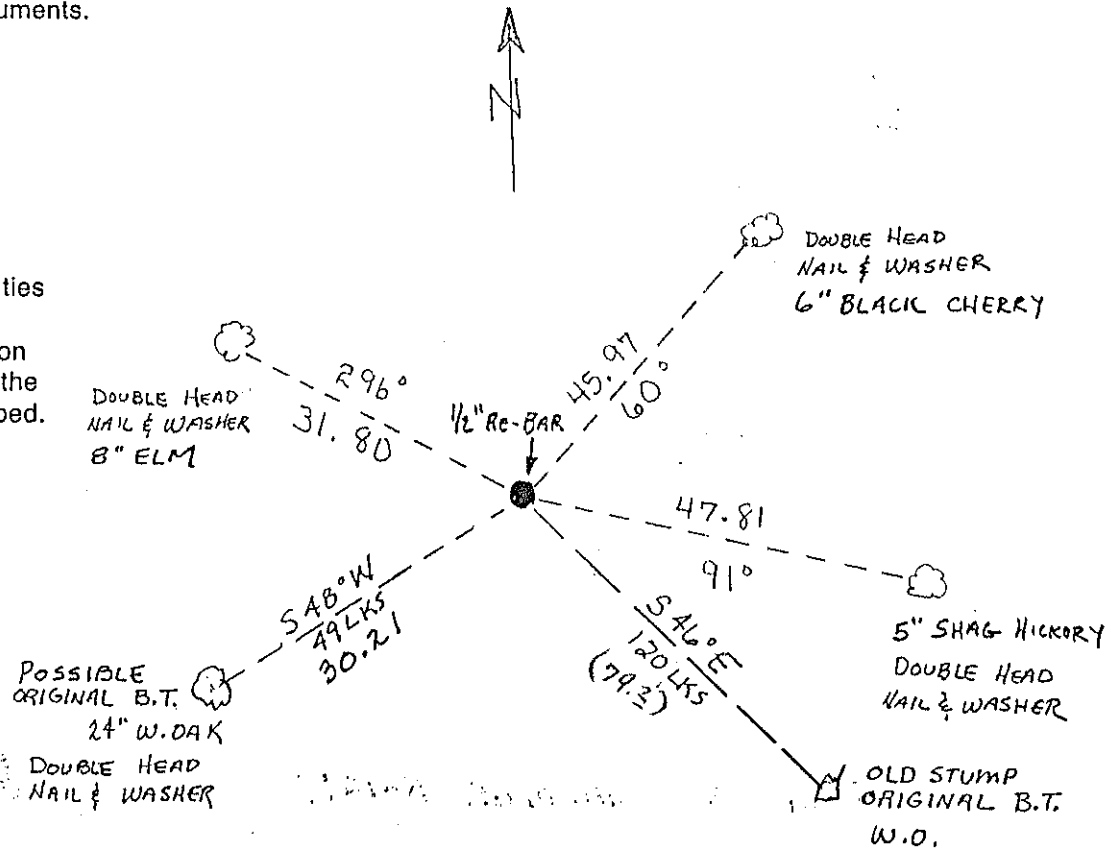 uments.
N
ties
on
the
bed.
DOUBLE HEAD
NAIL & WASHER
6" BLACK CHERRY
45.97
60°
296°
31.80
DOUBLE HEAD
NAIL & WASHER
8" ELM
1/2" Re-BAR
47.81
91°
5" SHAG HICKORY
DOUBLE HEAD
NAIL & WASHER
S 48° W
49 LKS
30.21
POSSIBLE
ORIGINAL B.T.
24" W. OAK
DOUBLE HEAD
NAIL & WASHER
S 46° E
120 LKS
OLD STUMP
ORIGINAL B.T.
W.O.